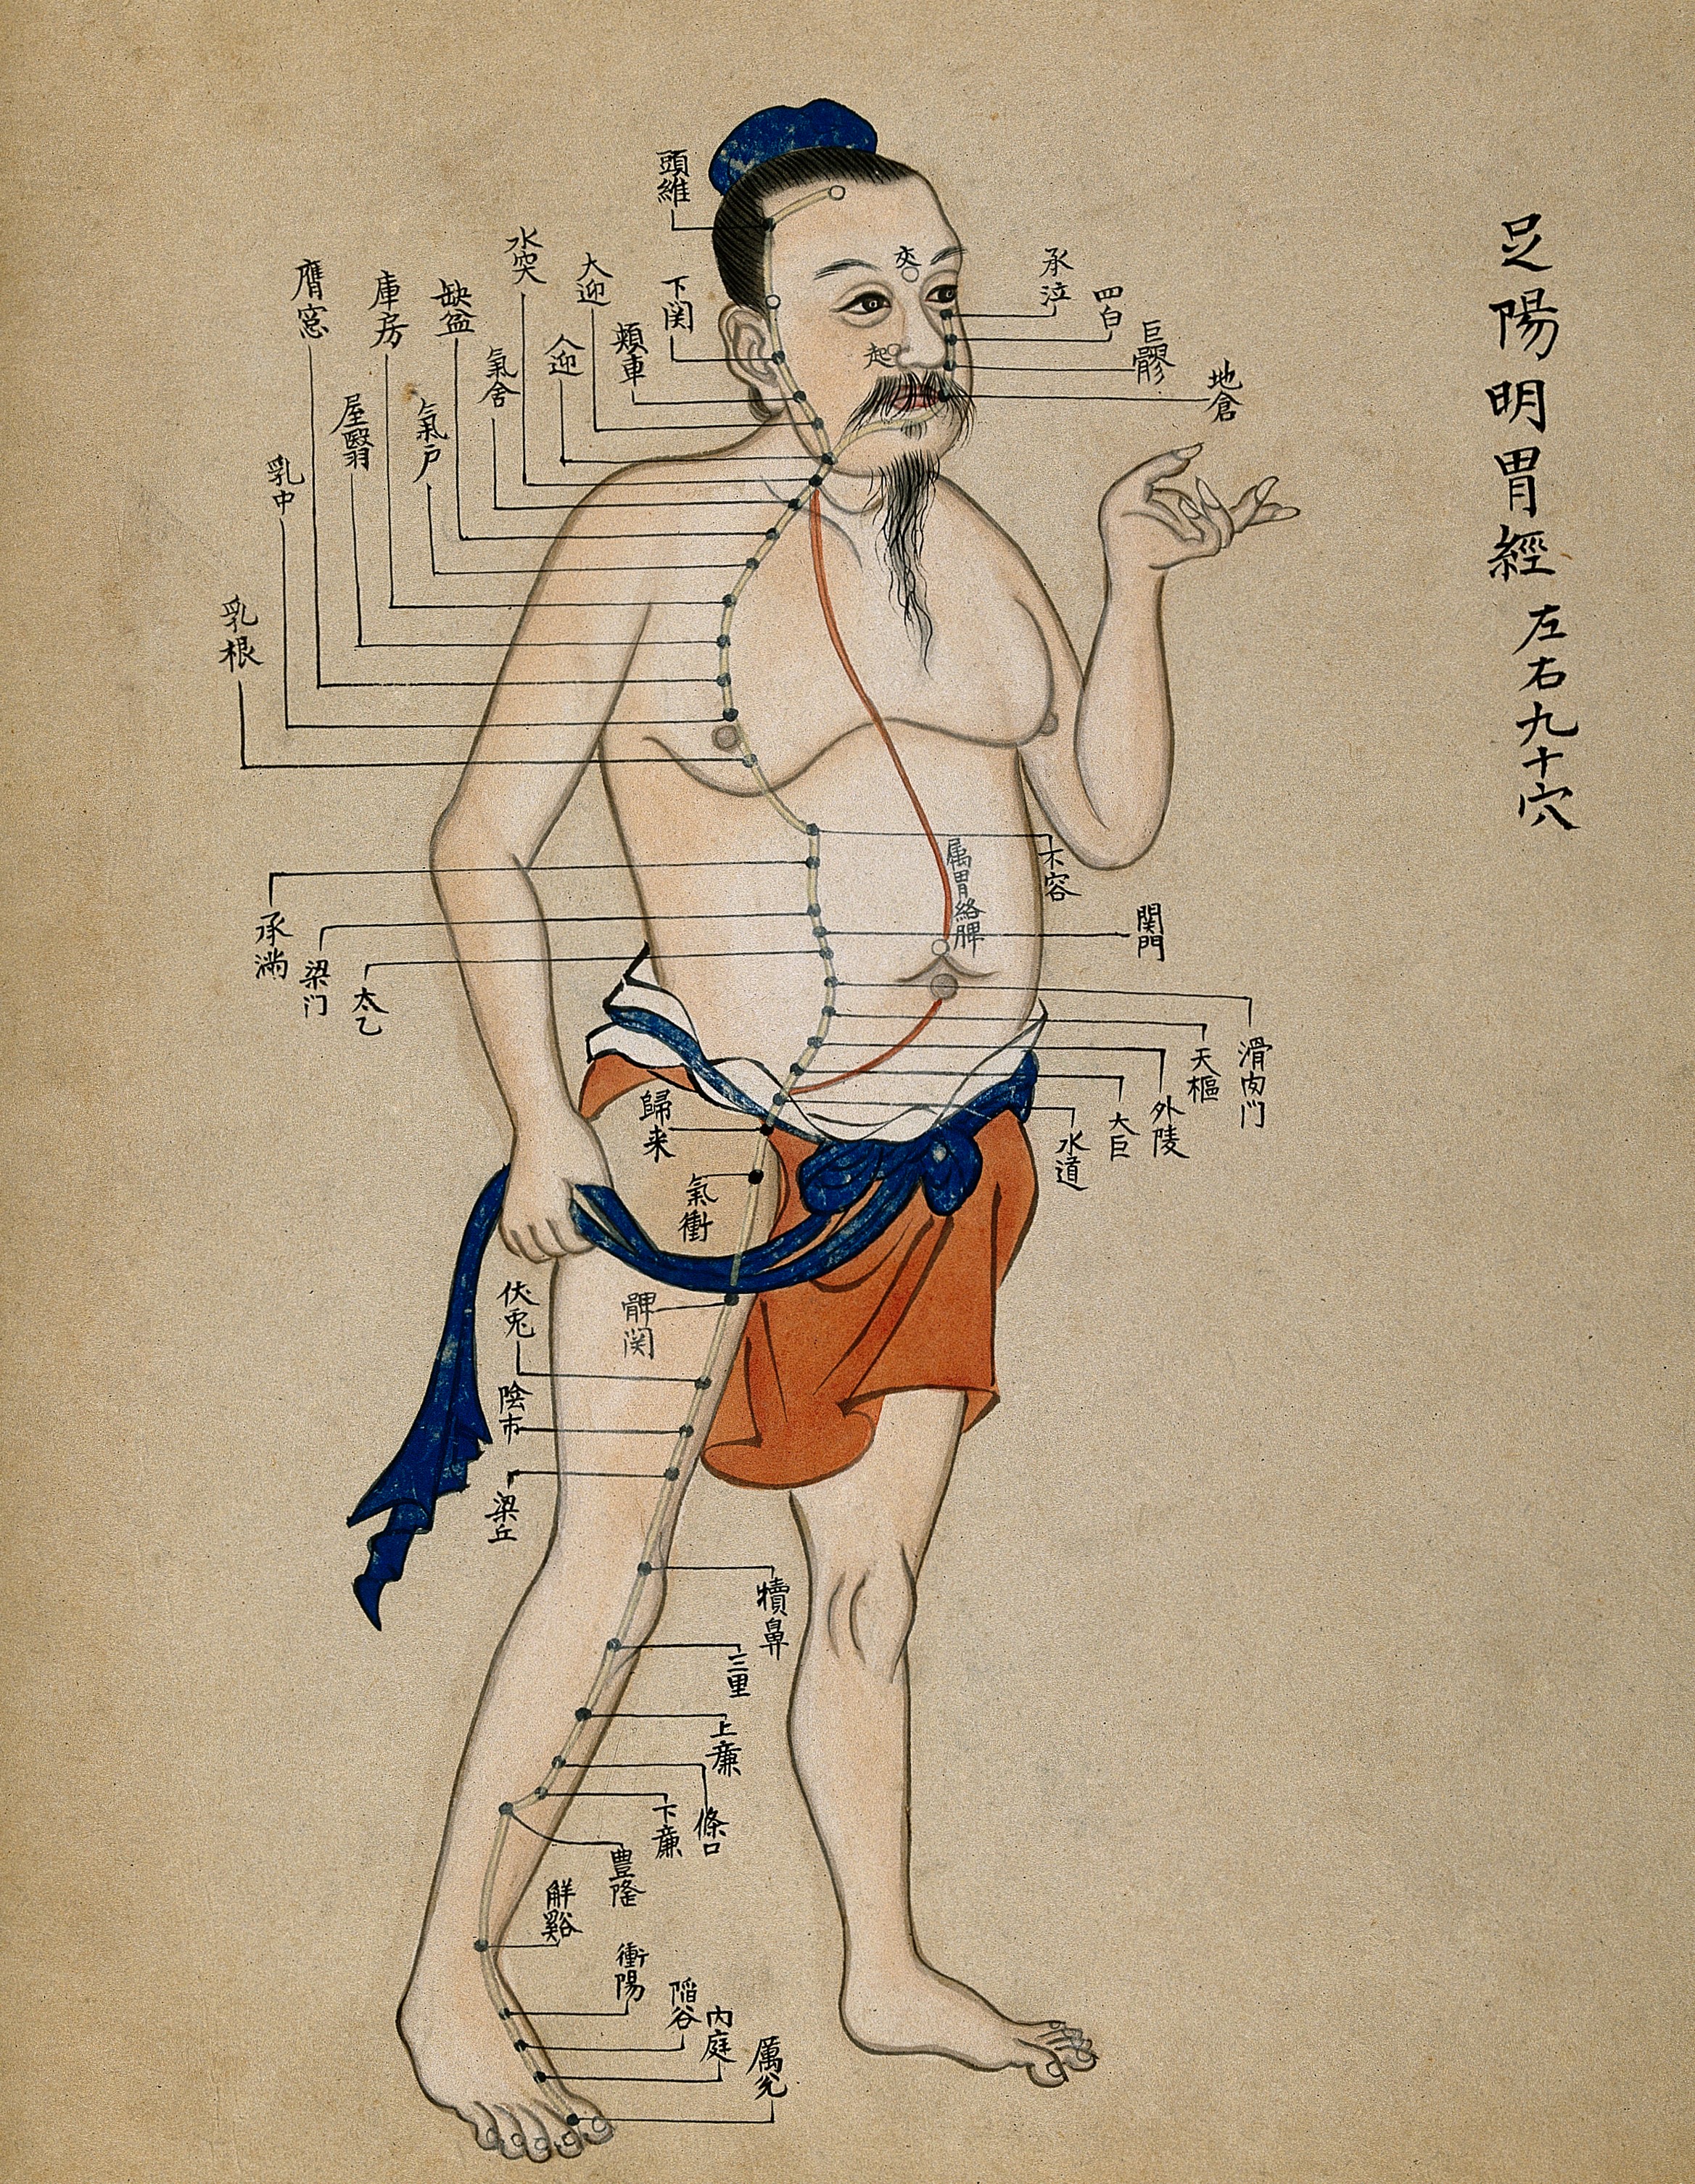 足陽明胃經左右九十穴
頭維
下関
頬車
大迎
人迎
水突
氣舎
缺盆
氣户
庫房
屋翳
膺窓
乳中
乳根
承泣
四白
巨髎
地倉
交
起
不容
承満
梁门
関門
太乙
滑肉门
天樞
外陵
大巨
水道
属胃絡脾
歸来
氣衝
髀関
伏兎
陰市
梁丘
犢鼻
三里
上廉
條口
下廉
豊隆
解谿
衝陽
陷谷
内庭
厲兌